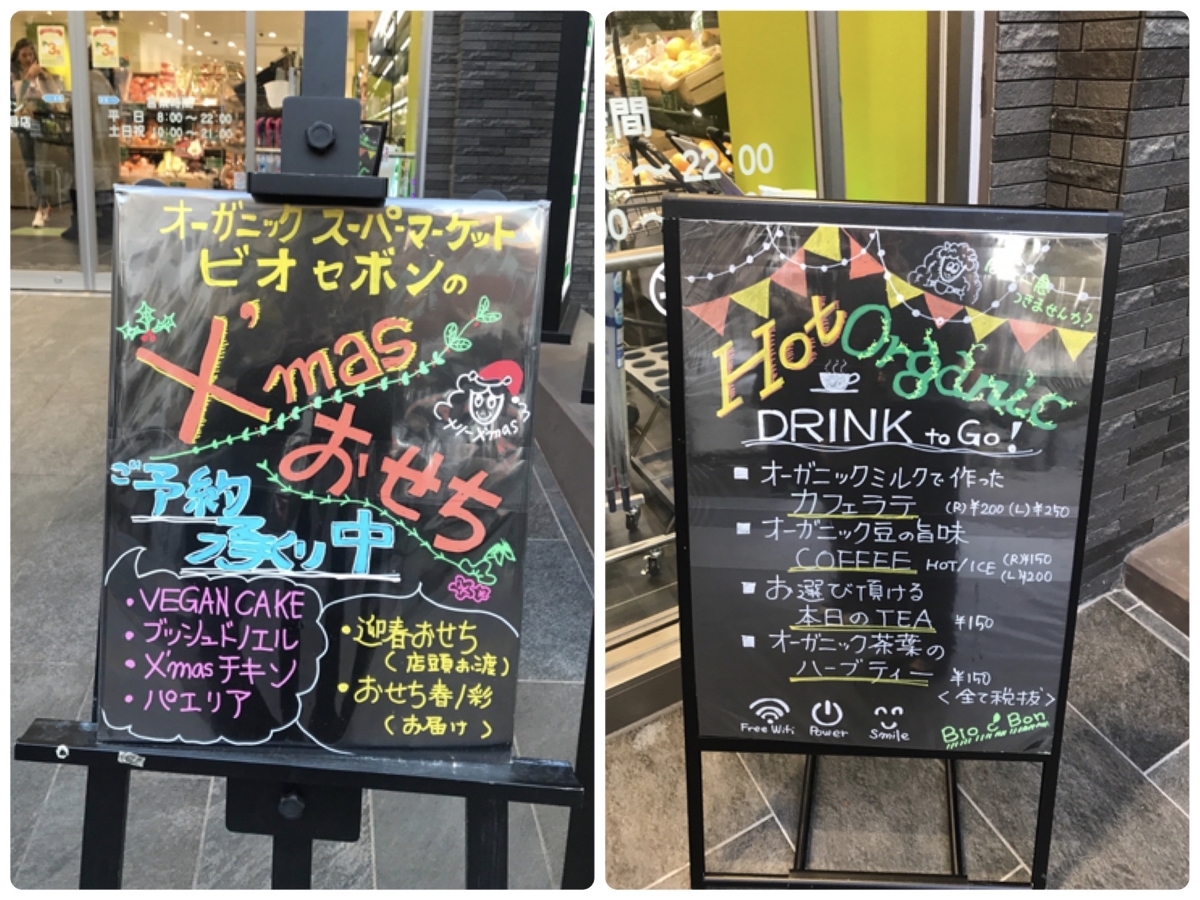 平日 8:00〜22:00
土日祝 10:00〜21:00
オーガニック スーパーマーケット
ビオセボンの
X'mas
おせち
メリーX'mas
ご予約
承り中
・VEGAN CAKE
・ブッシュドノエル
・X'masチキン
・パエリア
・迎春おせち
(店頭お渡)
・おせち春/彩
(お届け)
間
〜22:00
つきませんか?
Hot Organic
DRINK to Go!
オーガニックミルクで作った
カフェラテ (R)¥200 (L)¥250
オーガニック豆の旨味
COFFEE HOT/ICE (R)¥150
(L)¥200
お選び頂ける
本日のTEA ¥150
オーガニック茶葉の
ハーブティー ¥150
<全て税抜>
Free Wifi Power Smile
Bio c' Bon